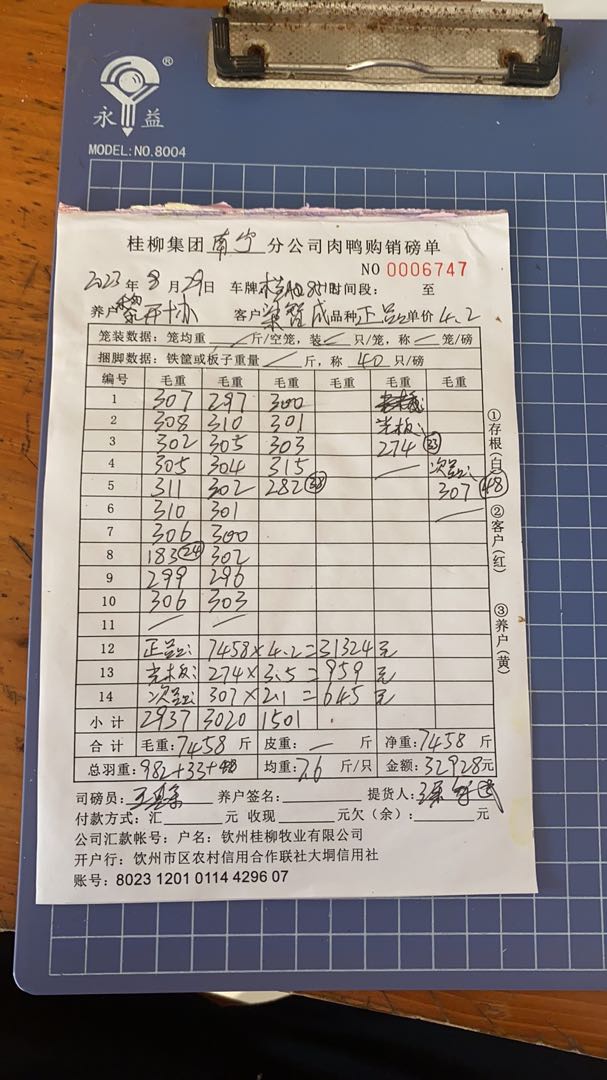 永益®
MODEL:NO.8004
桂柳集团 南宁 分公司肉鸭购销磅单
NO 0006747
2023 年 8 月 29 日 车牌 时间段: 至
养户 客户 成 品种 正品 单价 4.2
笼装数据:笼均重 / 斤/空笼,装 / 只/笼,称 / 笼/磅
捆脚数据:铁筐或板子重量 / 斤,称 40 只/磅
编号 毛重 毛重 毛重 毛重 毛重 毛重
1 307 297 300
2 308 310 301 光板:
3 302 305 303 274 33
4 305 304 315 / 次品:
5 311 302 282 38 307 48
6 310 301 /
7 306 300
8 183 24 302
9 299 296
10 306 303
11 / /
12 正品: 7458×4.2=31324元
13 光板: 274×3.5=959元
14 次品: 307×2.1=645元
小计 2937 3020 1501
合计 毛重:7458 斤 皮重: / 斤 净重:7458 斤
总羽重:982+33+48 均重:7.6 斤/只 金额:32928元
司磅员: 养户签名: 提货人:
付款方式:汇 元 收现 元欠(余): 元
公司汇款帐号:户名:钦州桂柳牧业有限公司
开户行:钦州市区农村信用合作联社大垌信用社
账号:8023 1201 0114 4296 07
①存根(白)②客户(红)③养户(黄)